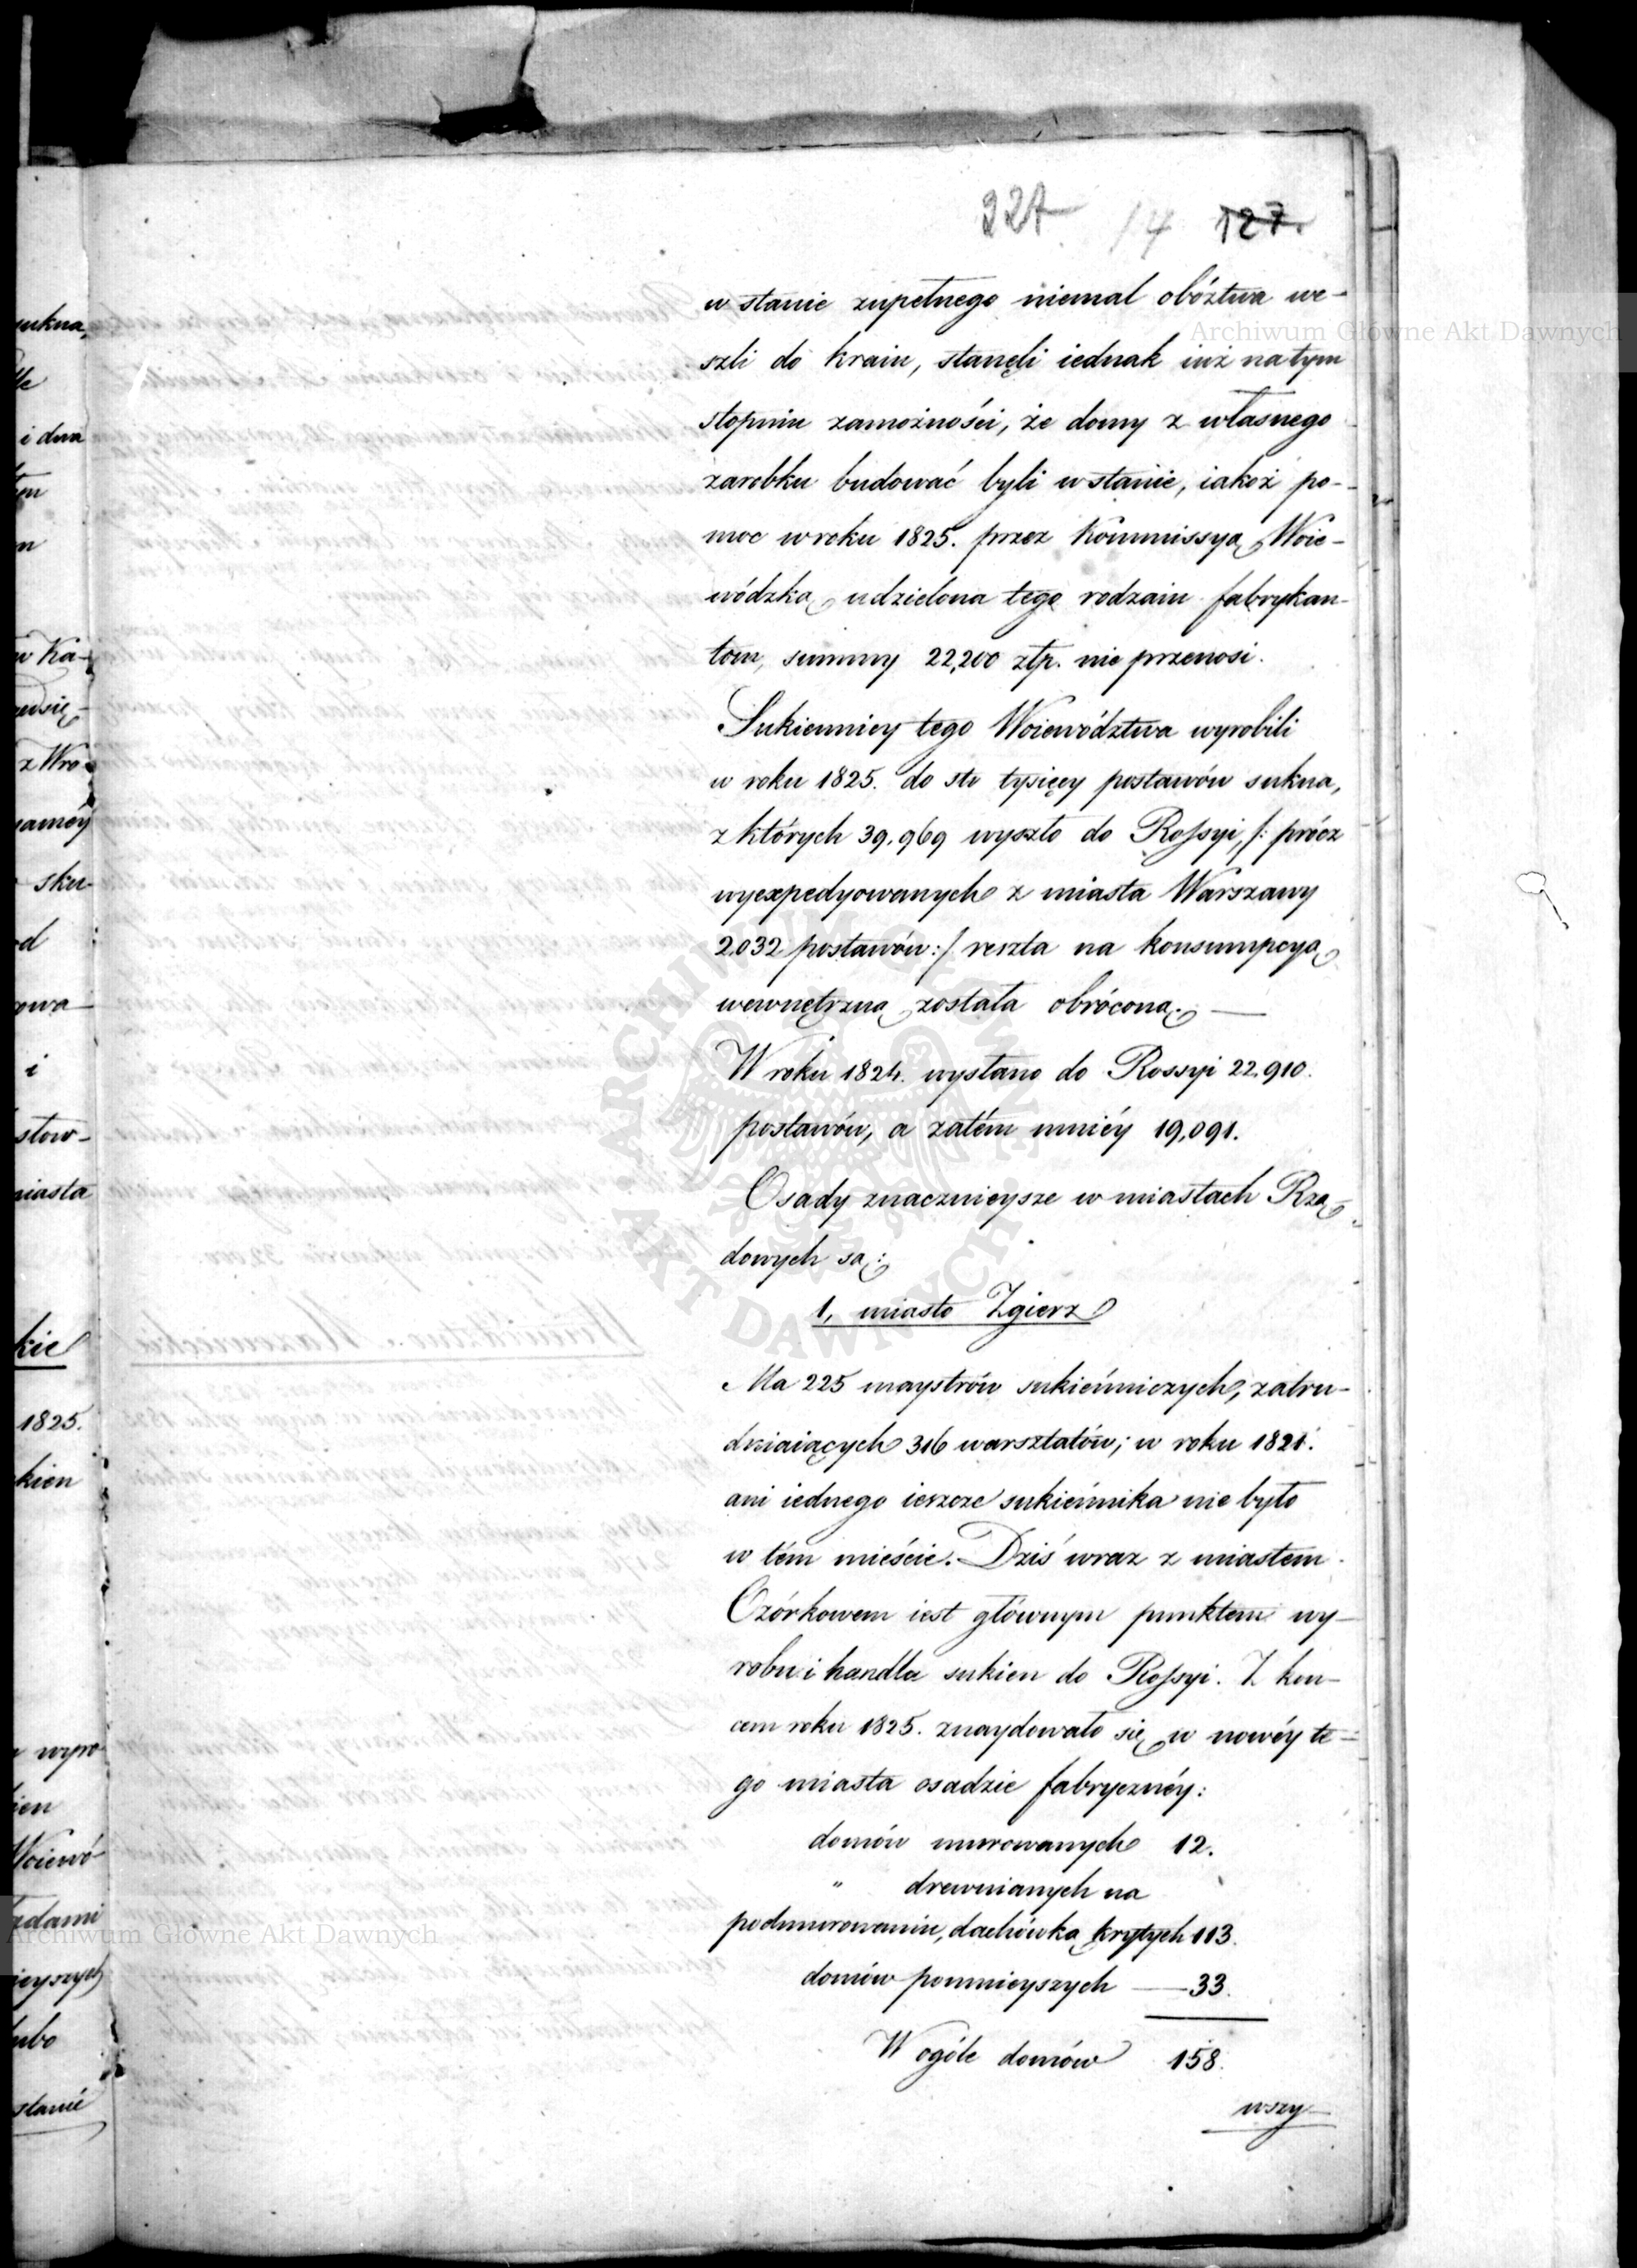 227 14 127.
w stanie zupełnego niemal obóztwa we-
szli do kraiu, stanęli iednak iuż na tym
stopniu zamożności, że domy z własnego
zarobku budować byli w stanie, iakoż po-
moc w roku 1825. przez Kommissyą Woie-
wódzką udzielona tego rodzaiu fabrykan-
tom, summy 22,200 złp. nie przenosi.
Sukiennicy tego Woiewództwa wyrobili
w roku 1825. do stu tysięcy postawów sukna,
z których 39,969 wyszło do Rossyi, /: prócz
wyexpedyowanych z miasta Warszawy
2,032 postawów :/ reszta na konsumpcyą
wewnętrzną została obróconą. —
W roku 1824. wysłano do Rossyi 22,910.
postawów, a zatém mniéy 19,091.
Osady znacznieysze w miastach Rzą-
dowych są:
1, miasto Zgierz
Ma 225 maystrów sukienniczych, zatru-
dniaiących 316 warsztatów; w roku 1821.
ani iednego ieszcze sukiennika nie było
w tém mieście. Dziś wraz z miastem
Ozórkowem iest głównym punktem wy-
robu i handlu sukien do Rossyi. Z koń-
cem roku 1825. znaydowało się w nowéy te-
go miasta osadzie fabrycznéy:
domów murowanych 12.
" drewnianych na
podmurowaniu, dachówką krytych 113.
domów pomnieyszych — 33.
W ogóle domów 158.
wszy-
sukna,
i dwa
w Ka-
z Wro-
saméy
sku-
d
owa
i
stow-
miasta
kie
1825.
kien
wyro-
ien
Woiewó-
adami
ieyszych
lubo
stanie
Archiwum Główne Akt Dawnych
Archiwum Główne Akt Dawnych
ARCHIWUM GŁÓWNE AKT DAWNYCH